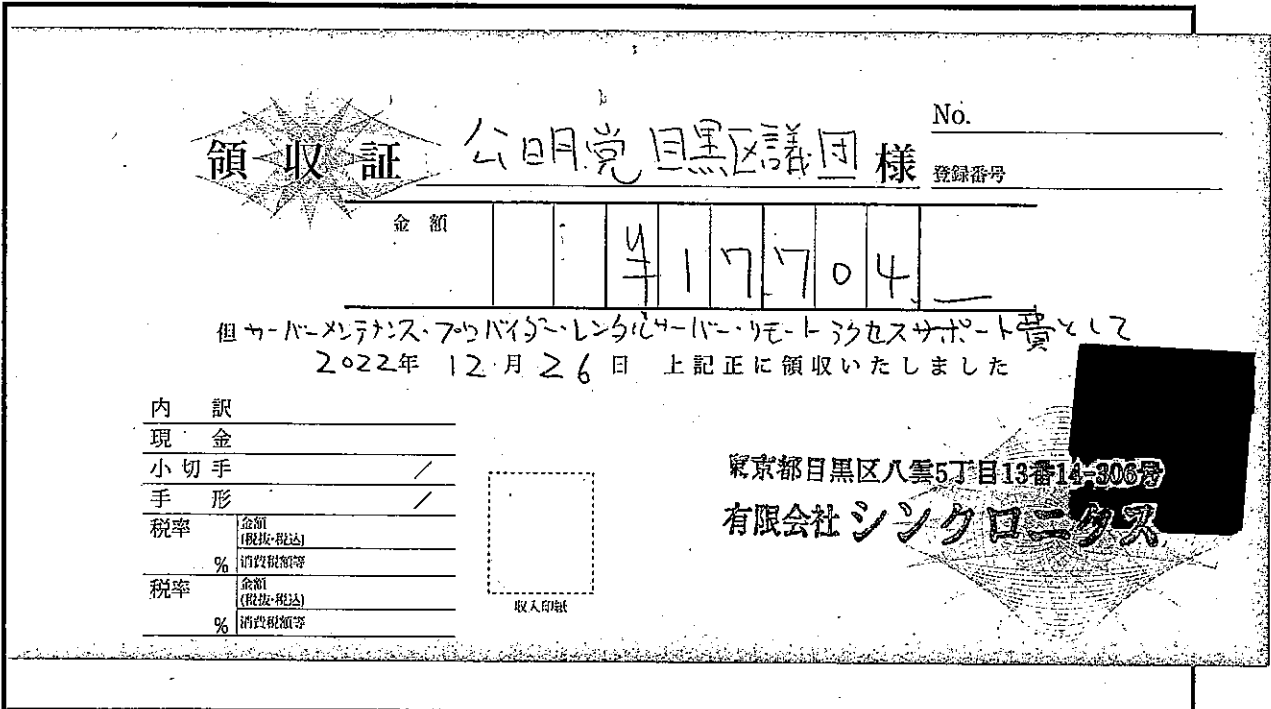 No.
領収証 公明党目黒区議団 様
登録番号
金額 ¥17,704.—
但サーバーメンテナンス・プロバイダー・レンタルサーバー・リモートアクセスサポート費として
2022年 12月 26日 上記正に領収いたしました
内訳
現金
小切手 /
手形 /
税率 % 金額(税抜・税込)
消費税額等
税率 % 金額(税抜・税込)
消費税額等
収入印紙
東京都目黒区八雲5丁目13番14-306号
有限会社シンクロニクス